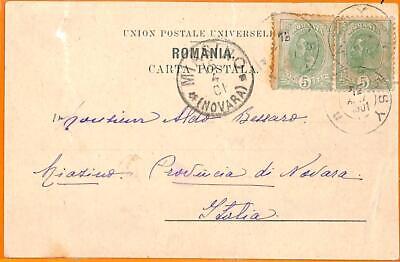 UNION POSTALE UNIVERSELLE
ROMÂNIA
CARTA POSTALA
(NOVARA)
4
01
5
5
Monsieur Aldo Bessaro
Miazino Provincia di Novara
Italia